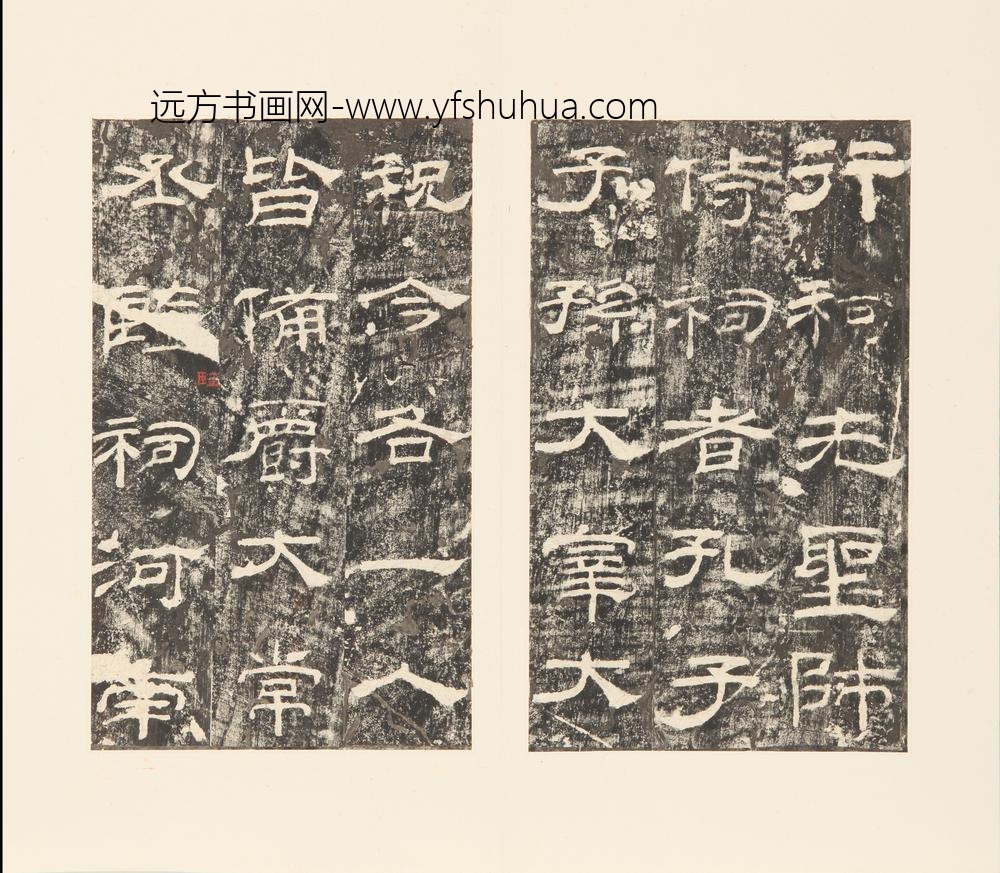 远方书画网-www.yfshuhua.com
行祠先聖師
侍祠者孔子
子孫大宰大
祝令各一人
皆備爵大常
丞監祠河南